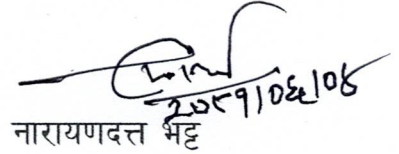 २०८१।०६।०४
नारायणदत्त भट्ट